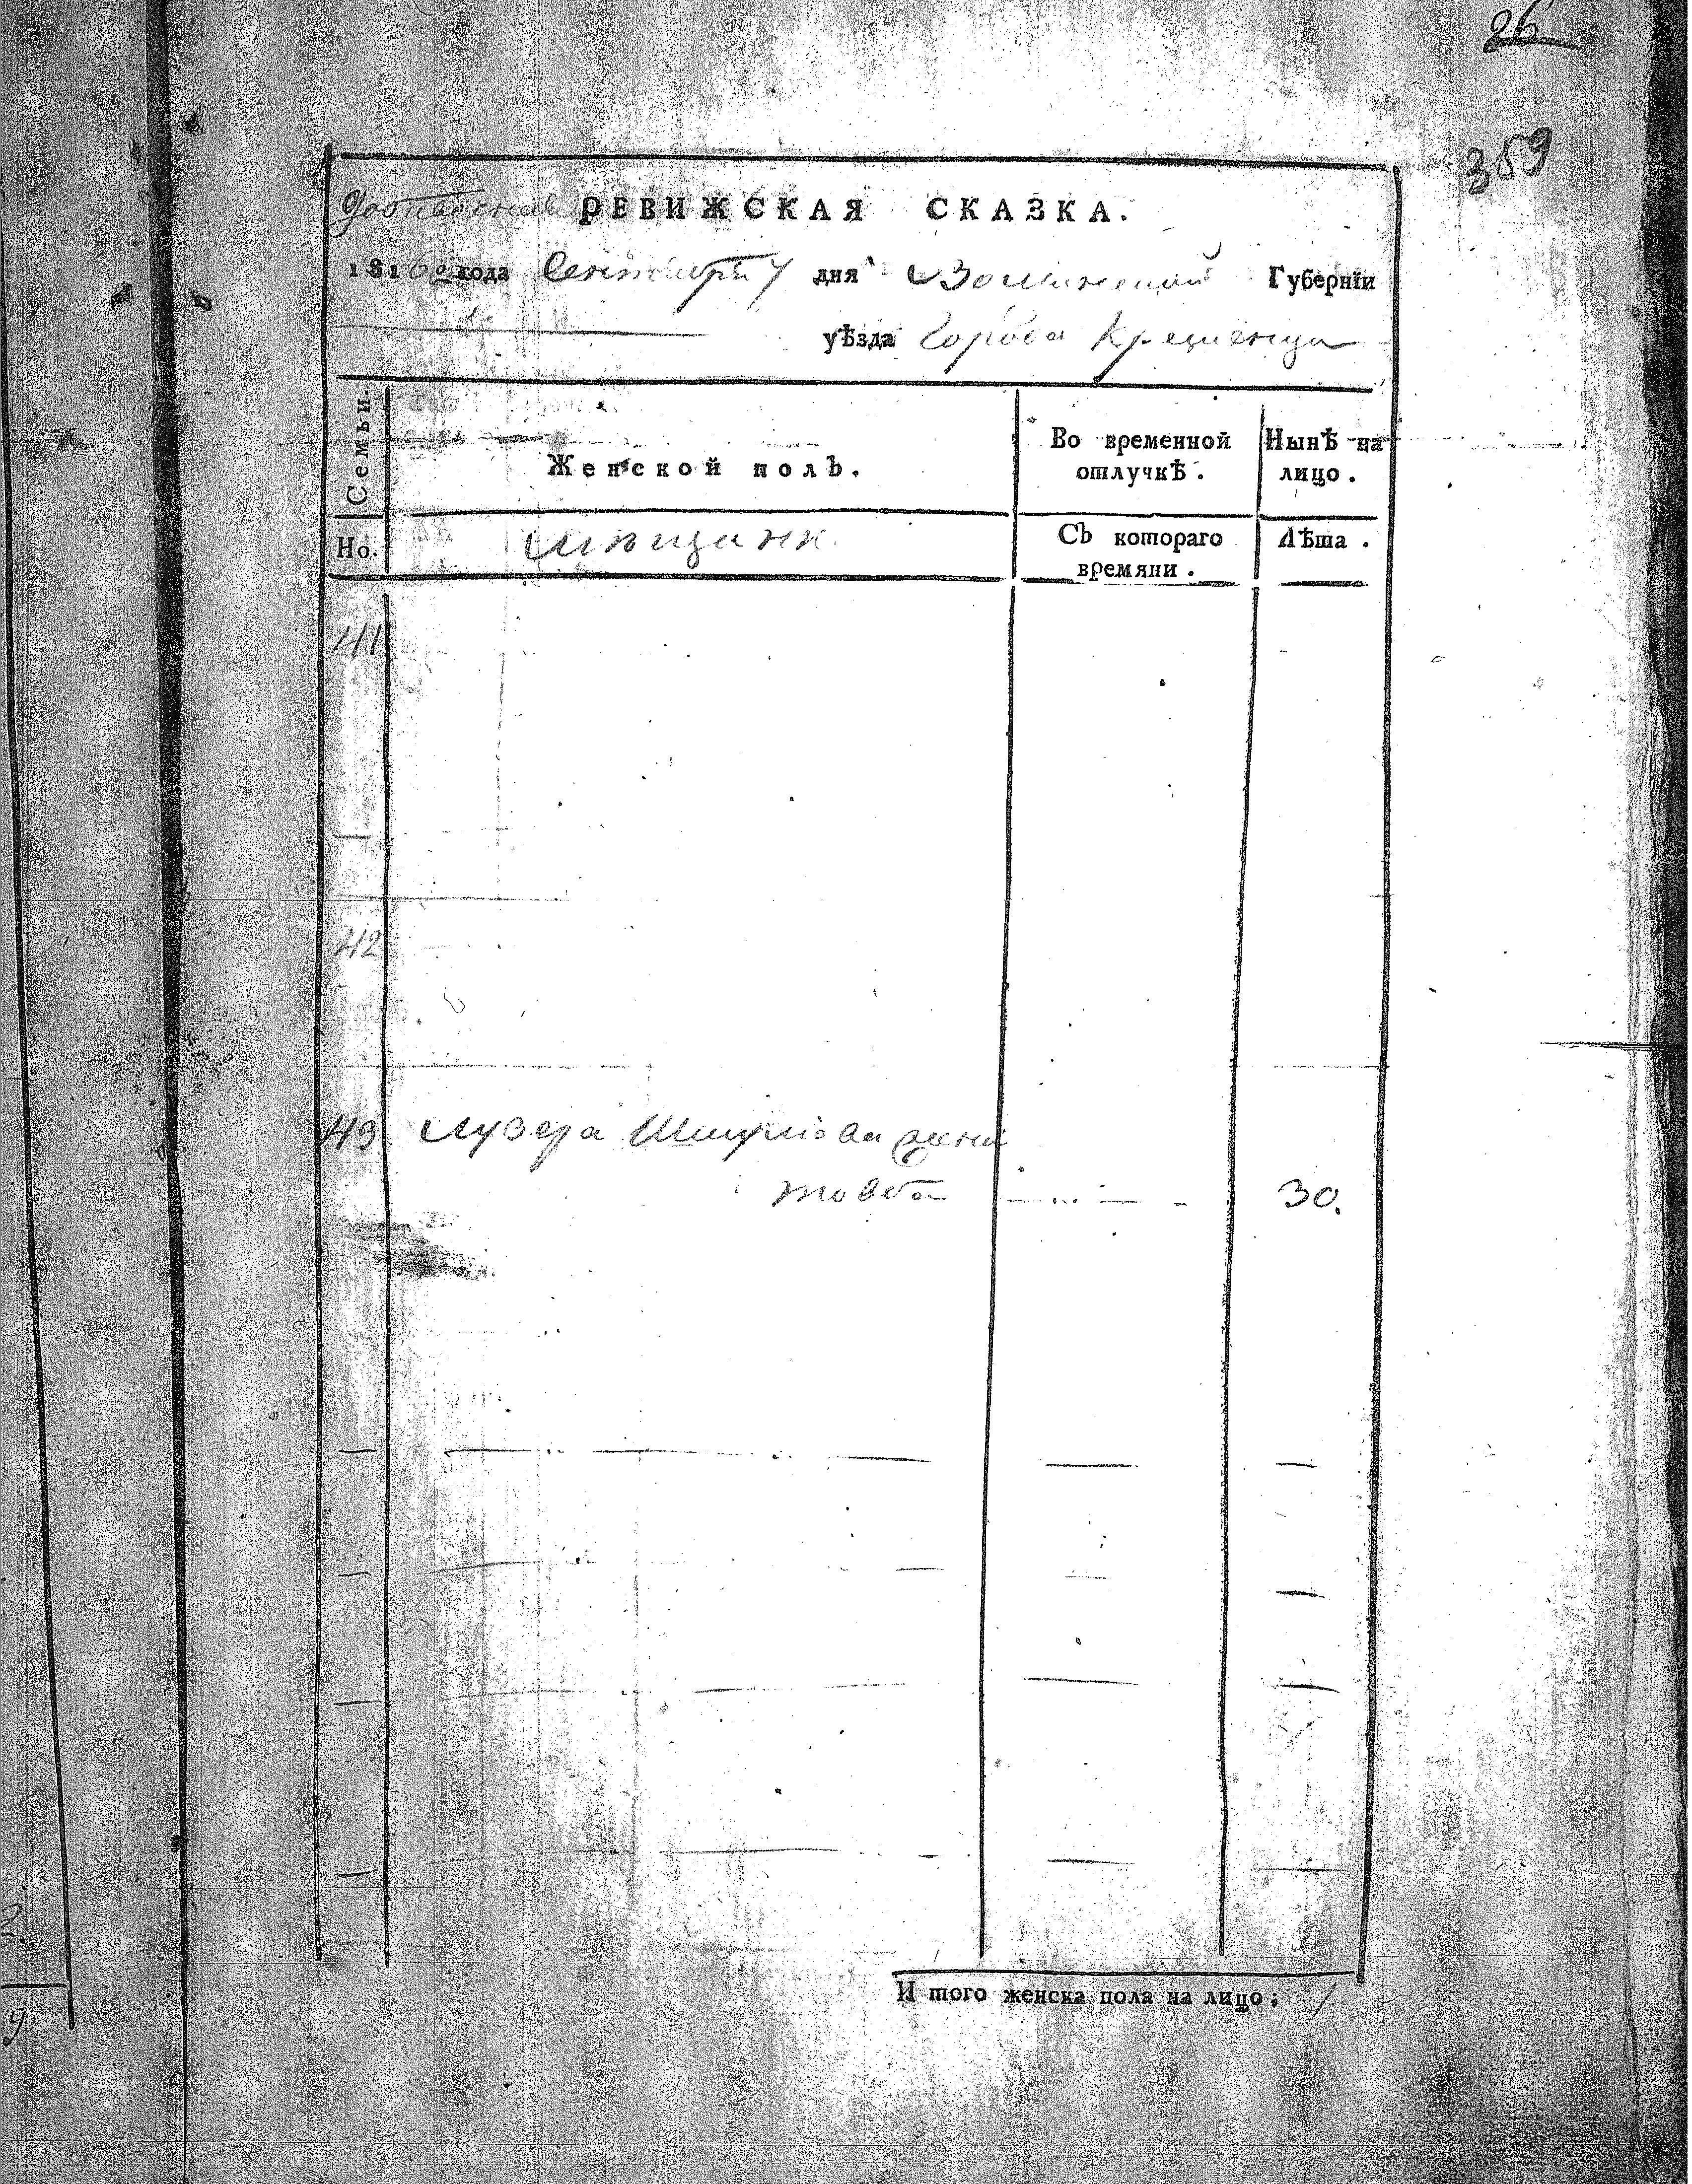 26
359
РЕВИЖСКАЯ СКАЗКА.
1816го года Сентября 7 дня Волынской Губернїи
уѣзда Города Кременца
Семьи.
Женской полъ.
Во временной
отлучкѣ.
Нынѣ на
лицо.
Но.
мѣщанк
Съ котораго
времяни.
Лѣта.
41
42
43 Лузера Шмулiова жена
товба 30.
2.
9
И того женска пола на лицо; 1.